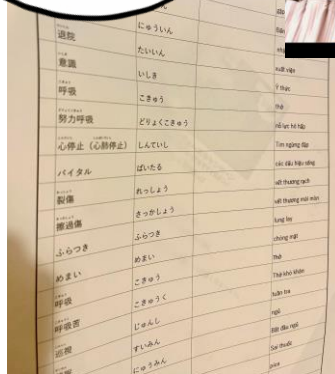 にゅういん
退院 たいいん xuất viện
意識 いしき Ý thức
呼吸 こきゅう thở
努力呼吸 どりょくこきゅう nỗ lực hô hấp
心停止（心肺停止） しんていし Tim ngừng đập
バイタル ばいたる các dấu hiệu sống
裂傷 れっしょう vết thương rạch
擦過傷 さっかしょう vết thương mài mòn
ふらつき ふらつき lung lay
めまい めまい chóng mặt
呼吸 こきゅう Thở
呼吸苦 こきゅうく Thở khó khăn
巡視 じゅんし tuần tra
すいみん ngủ
にゅうみん Bắt đầu ngủ
Soi thuốc